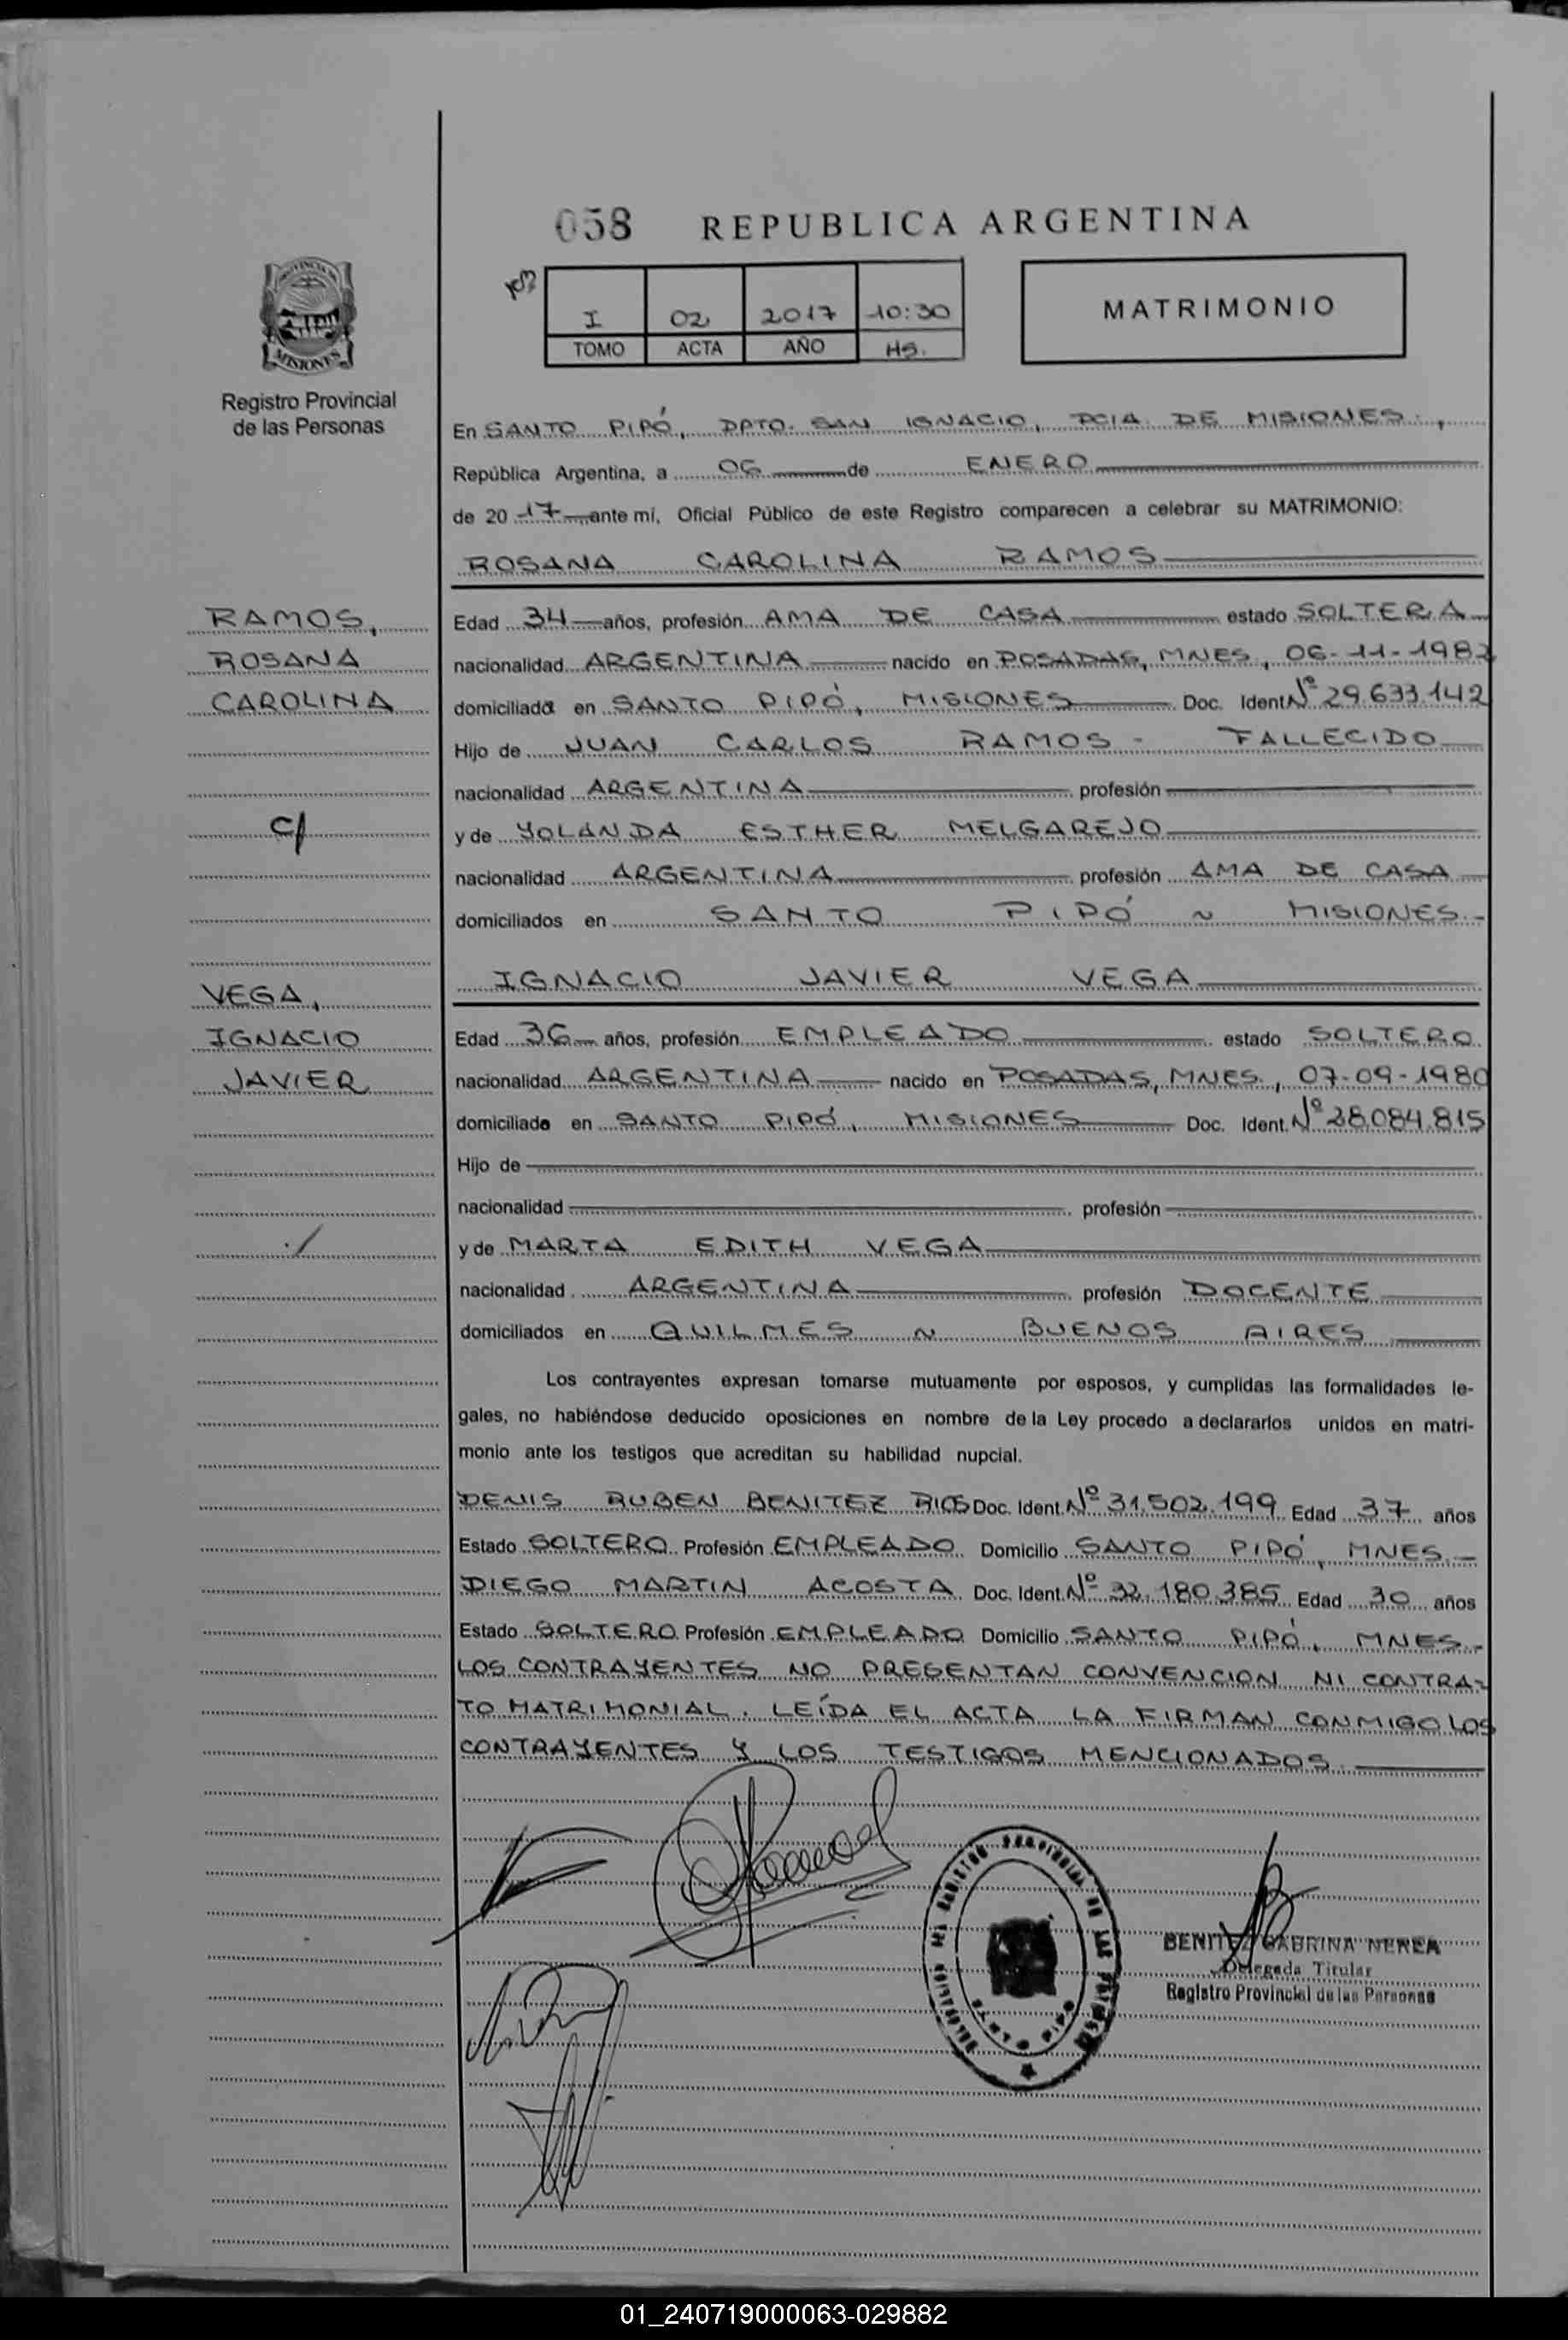 058 REPUBLICA ARGENTINA
PROVINCIA DE
MISIONES
Registro Provincial
de las Personas
I 02 2017 10:30
TOMO ACTA AÑO HS.
MATRIMONIO
En SANTO PIPÓ, DPTO. SAN IGNACIO, PCIA. DE MISIONES.,
República Argentina, a 06 de ENERO
de 2017 ante mí, Oficial Público de este Registro comparecen a celebrar su MATRIMONIO:
ROSANA CAROLINA RAMOS
RAMOS,
ROSANA
CAROLINA
Edad 34 años, profesión AMA DE CASA estado SOLTERA
nacionalidad ARGENTINA nacido en POSADAS, MNES, 06-11-1982
domiciliada en SANTO PIPÓ, MISIONES Doc. Ident. Nº 29.633.142
Hijo de JUAN CARLOS RAMOS - FALLECIDO
nacionalidad ARGENTINA profesión
c/
y de YOLANDA ESTHER MELGAREJO
nacionalidad ARGENTINA profesión AMA DE CASA
domiciliados en SANTO PIPÓ ~ MISIONES.-
IGNACIO JAVIER VEGA
VEGA,
IGNACIO
JAVIER
Edad 36 años, profesión EMPLEADO estado SOLTERO
nacionalidad ARGENTINA nacido en POSADAS, MNES., 07-09-1980
domiciliado en SANTO PIPÓ, MISIONES Doc. Ident. Nº 28.084.815
Hijo de
nacionalidad profesión
y de MARTA EDITH VEGA
nacionalidad ARGENTINA profesión DOCENTE
domiciliados en QUILMES ~ BUENOS AIRES
Los contrayentes expresan tomarse mutuamente por esposos, y cumplidas las formalidades le-
gales, no habiéndose deducido oposiciones en nombre de la Ley procedo a declararlos unidos en matri-
monio ante los testigos que acreditan su habilidad nupcial.
DENIS RUBEN BENITEZ RIOS Doc. Ident. Nº 31.502.199 Edad 37 años
Estado SOLTERO Profesión EMPLEADO Domicilio SANTO PIPÓ, MNES.-
DIEGO MARTIN ACOSTA Doc. Ident. Nº 32.180.385 Edad 30 años
Estado SOLTERO Profesión EMPLEADO Domicilio SANTO PIPÓ, MNES.-
LOS CONTRAYENTES NO PRESENTAN CONVENCION NI CONTRA-
TO MATRIMONIAL. LEÍDA EL ACTA LA FIRMAN CONMIGO LOS
CONTRAYENTES Y LOS TESTIGOS MENCIONADOS.
SANTO PIPO
BENITEZ SABRINA NEREA
Delegada Titular
Registro Provincial de las Personas
01_240719000063-029882